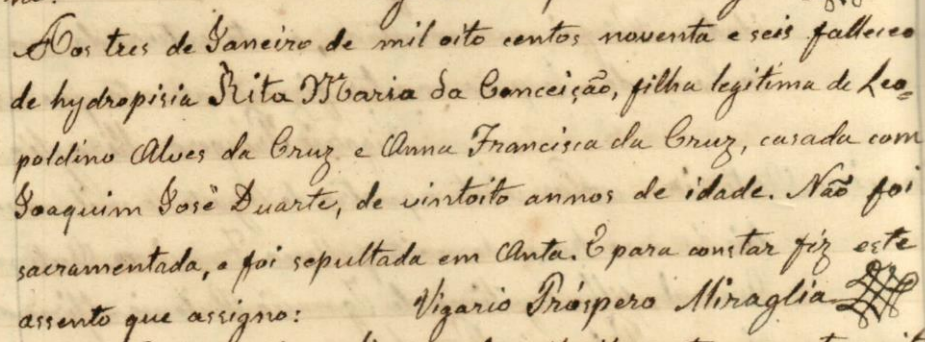 Aos tres de Janeiro de mil oito centos noventa e seis falleceo
de hydropisia Rita Maria da Conceição, filha legitima de Leo=
poldino Alves da Cruz e Anna Francisca da Cruz, casada com
Joaquim José Duarte, de vintoito annos de idade. Não foi
sacramentada, e foi sepultada em Anta. E para constar fiz este
assento que assigno: Vigario Próspero Miraglia